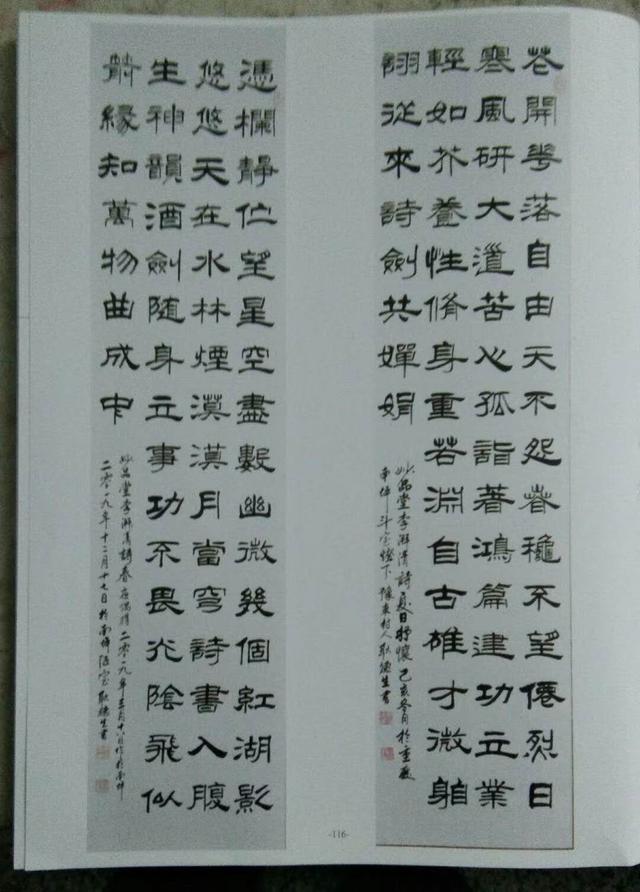 花開花落自由天不怨春穠不望僊烈日
寒風研大道苦心孤詣著鴻篇建功立業
輕如芥養性脩身重若淵自古雄才微
詡從來詩劍共嬋娟
詩夏日抒懷己亥冬月於重慶
南坪斗室燈下 村人耿德生書
憑欄靜佇望星空盡數幽微幾個紅湖影
悠悠天在水林煙漠漠月當穹詩書入腹
生神韻酒劍隨身立事功不畏光陰飛似
箭緣知萬物曲成中
二零一九年十二月十七日於南坪陋室耿德生書
-116-